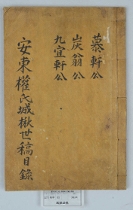 慕軒公
炭翁公
九宜軒公
安東權氏城楸世稿目錄